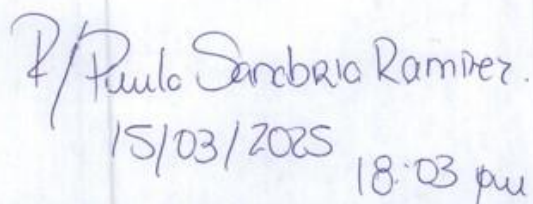 R/ Paulo Sanabria Ramirez.
15/03/2025
18:03 pm